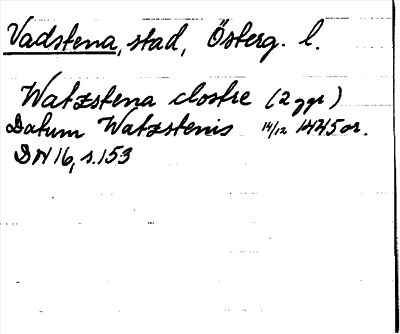 Vadstena, stad, Österg. l.
Watzstena clostre (2 ggr)
Datum Watzstenis 14/12 1445 or.
DN 16, s. 153